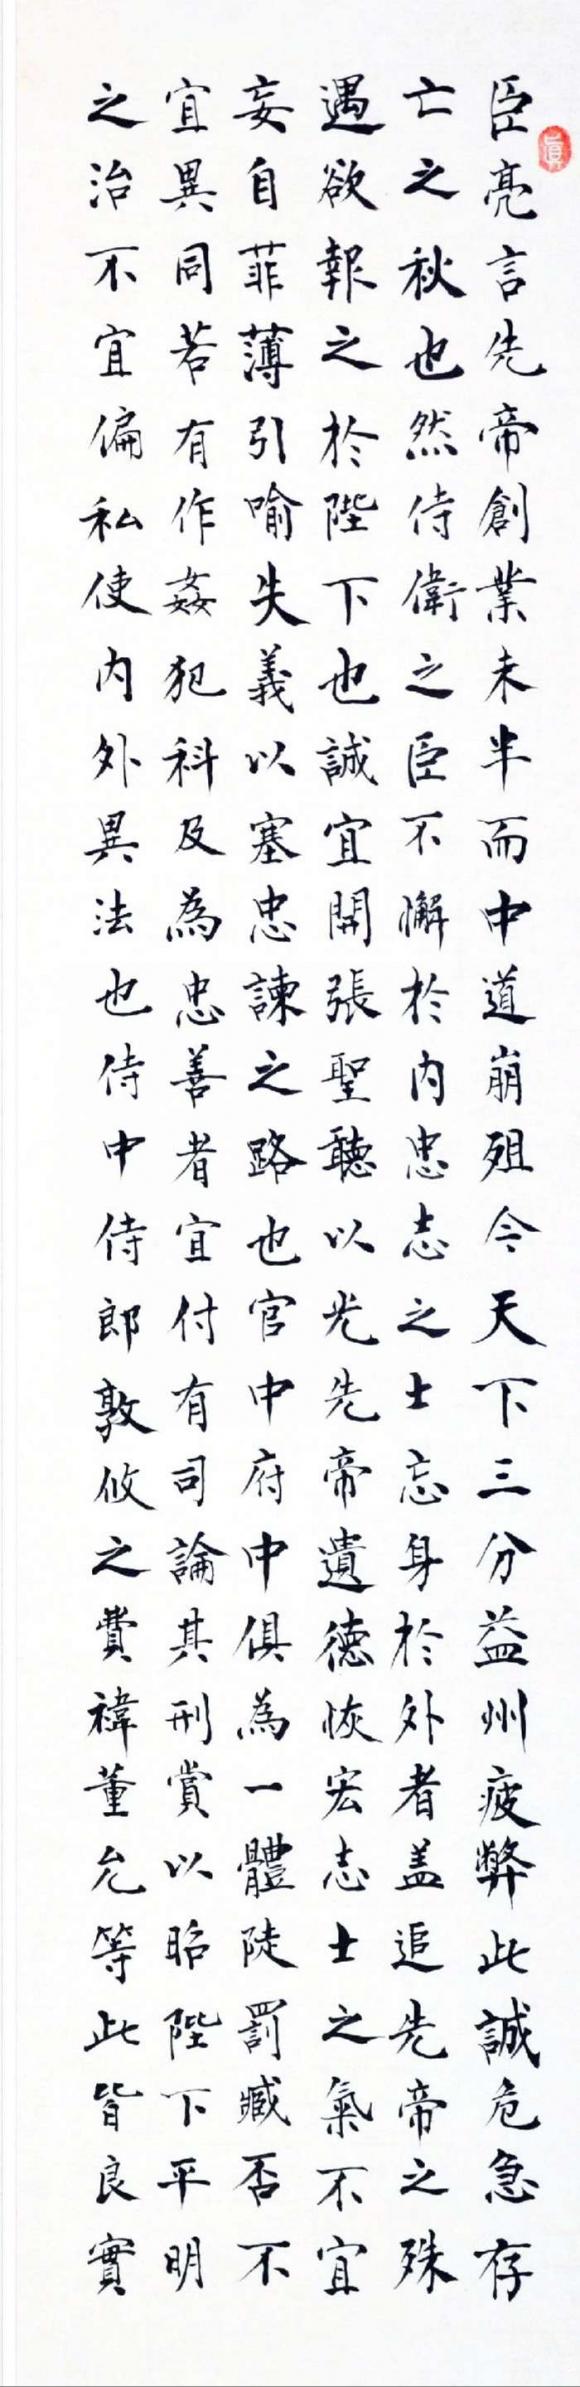 眞
臣亮言先帝創業未半而中道崩殂今天下三分益州疲弊此誠危急存
亡之秋也然侍衛之臣不懈於內忠志之士忘身於外者盖追先帝之殊
遇欲報之於陛下也誠宜開張聖聽以光先帝遺德恢宏志士之氣不宜
妄自菲薄引喻失義以塞忠諫之路也官中府中俱為一體陟罰臧否不
宜異同若有作姦犯科及為忠善者宜付有司論其刑賞以昭陛下平明
之治不宜偏私使內外異法也侍中侍郎敦攸之費禕董允等此皆良實